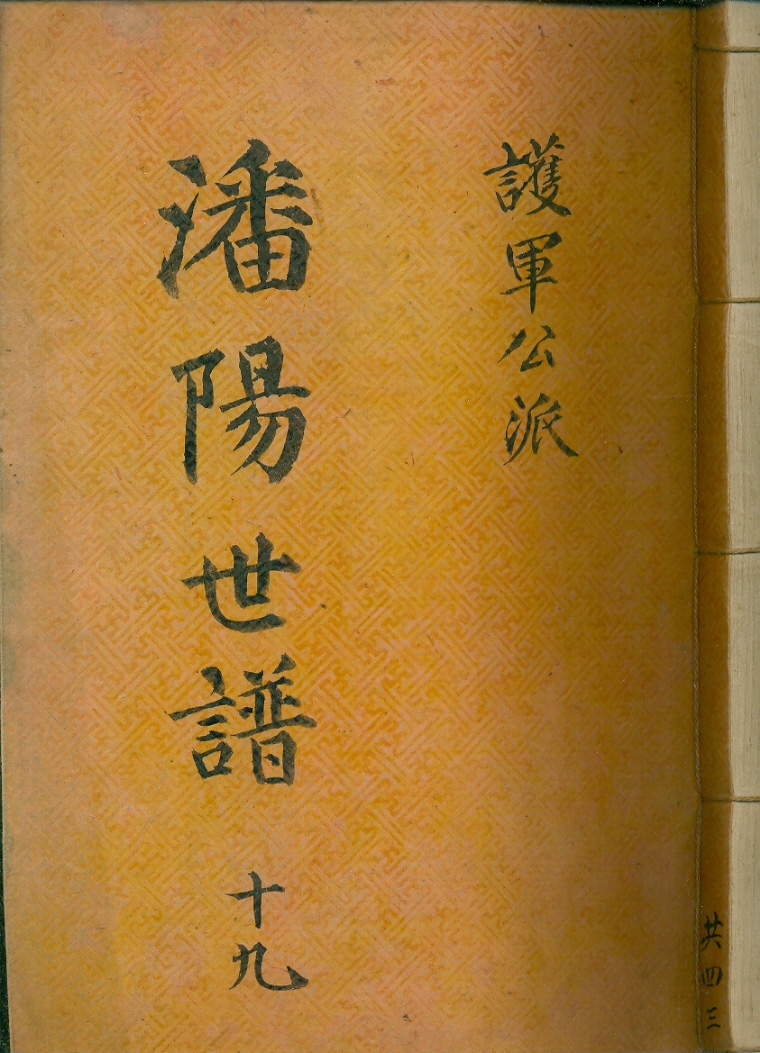 護軍公派
潘陽世譜 十九
共四三